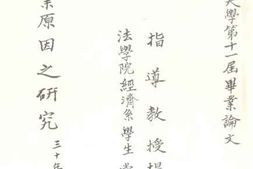 大學第十一屆畢業論文
指導教授
法學院經濟系學生
業原因之研究
三十年